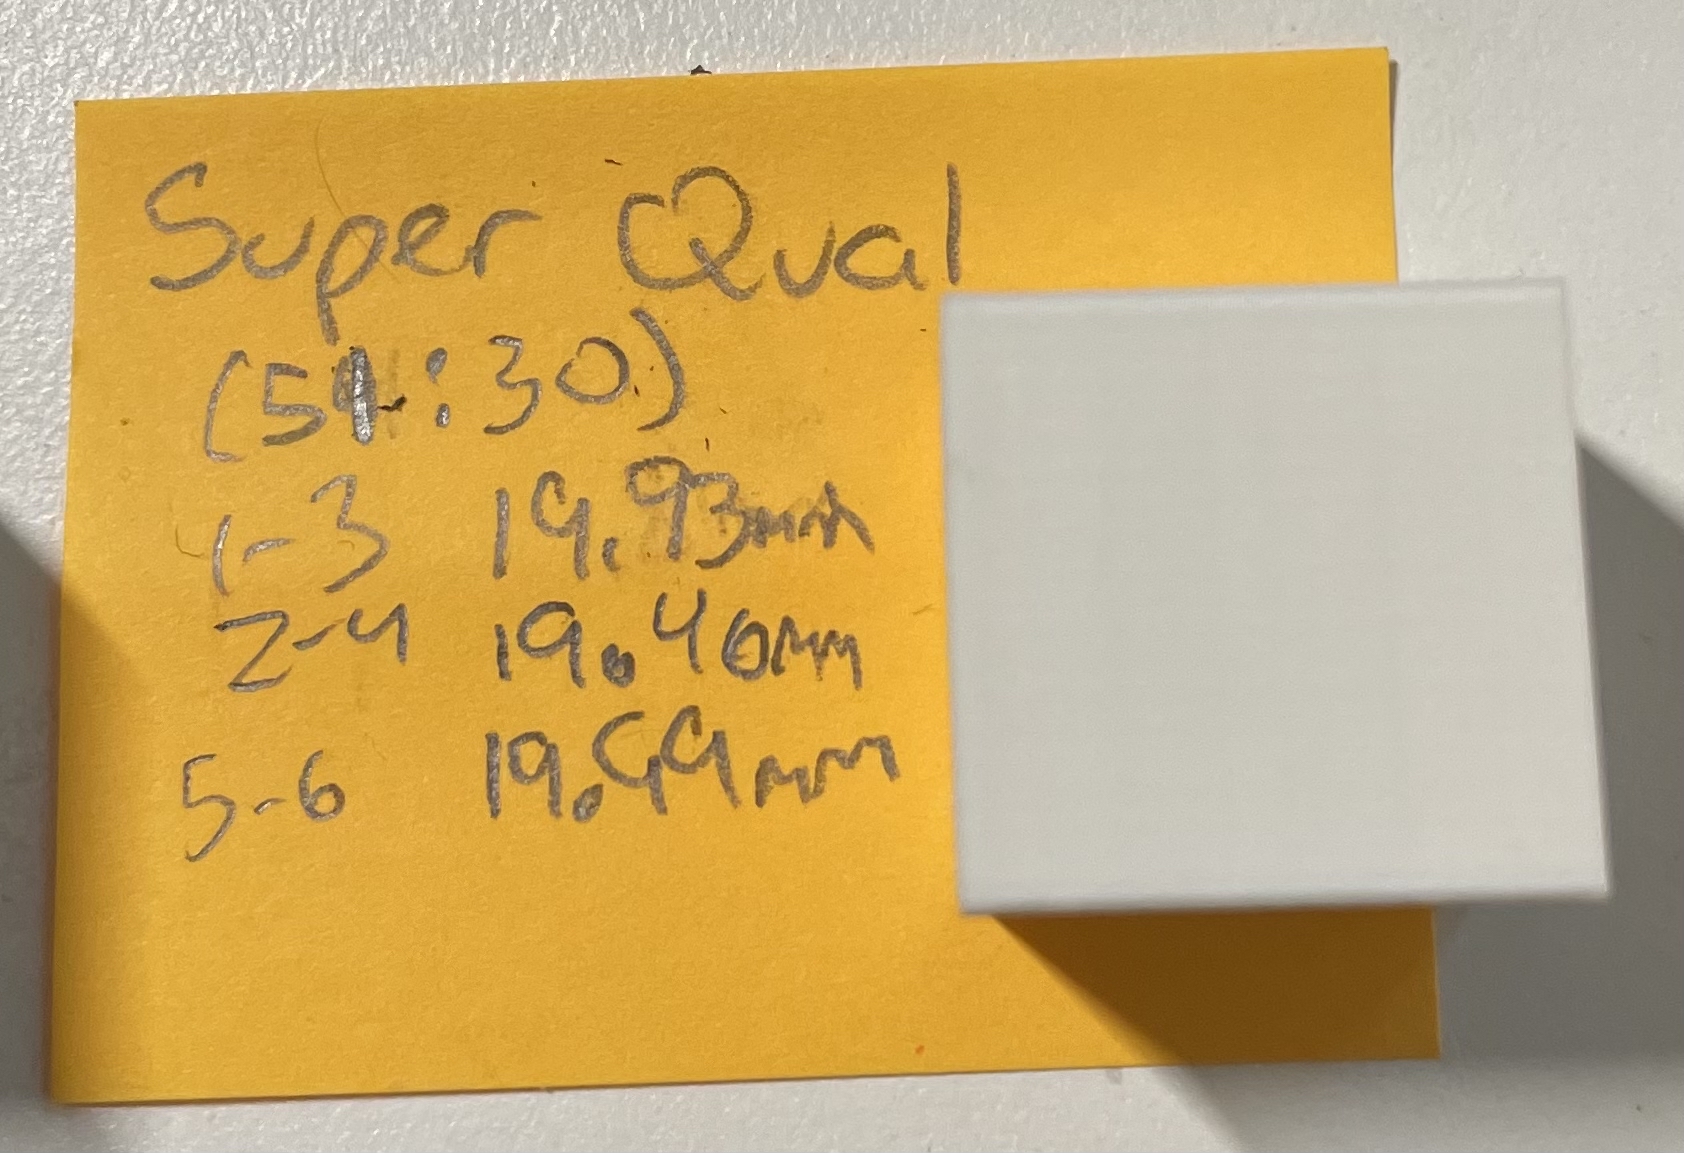 Super Qual
(51:30)
1-3 19.93mm
2-4 19.40mm
5-6 19.99mm